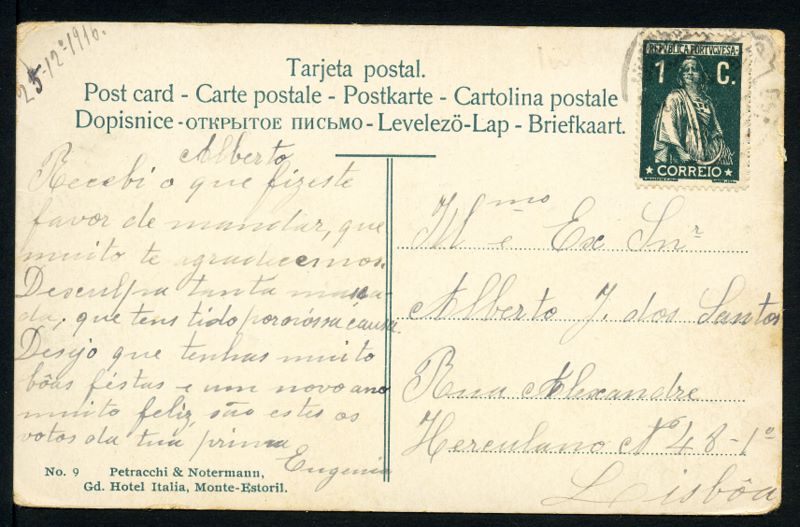 25-12-1916.
Tarjeta postal.
Post card - Carte postale - Postkarte - Cartolina postale
Dopisnice - ОТКРЫТОЕ ПИСЬМО - Levelezö-Lap - Briefkaart.
REPUBLICA PORTUGUESA
1 C.
CORREIO
Alberto
Recebi o que fizeste
favor de mandar, que
muito te agradecemos.
Desculpa tanta massa-
da, que tens tido por nóssa causa.
Desejo que tenhas muito
bôas féstas e um novo ano
muito feliz, são estes os
votos da tua prima
Eugenia
Ill mo e Ex Snr
Alberto J. dos Santos
Rua Alexandre
Herculano Nº 48-1º
Lisbôa
No. 9 Petracchi & Notermann,
Gd. Hotel Italia, Monte-Estoril.